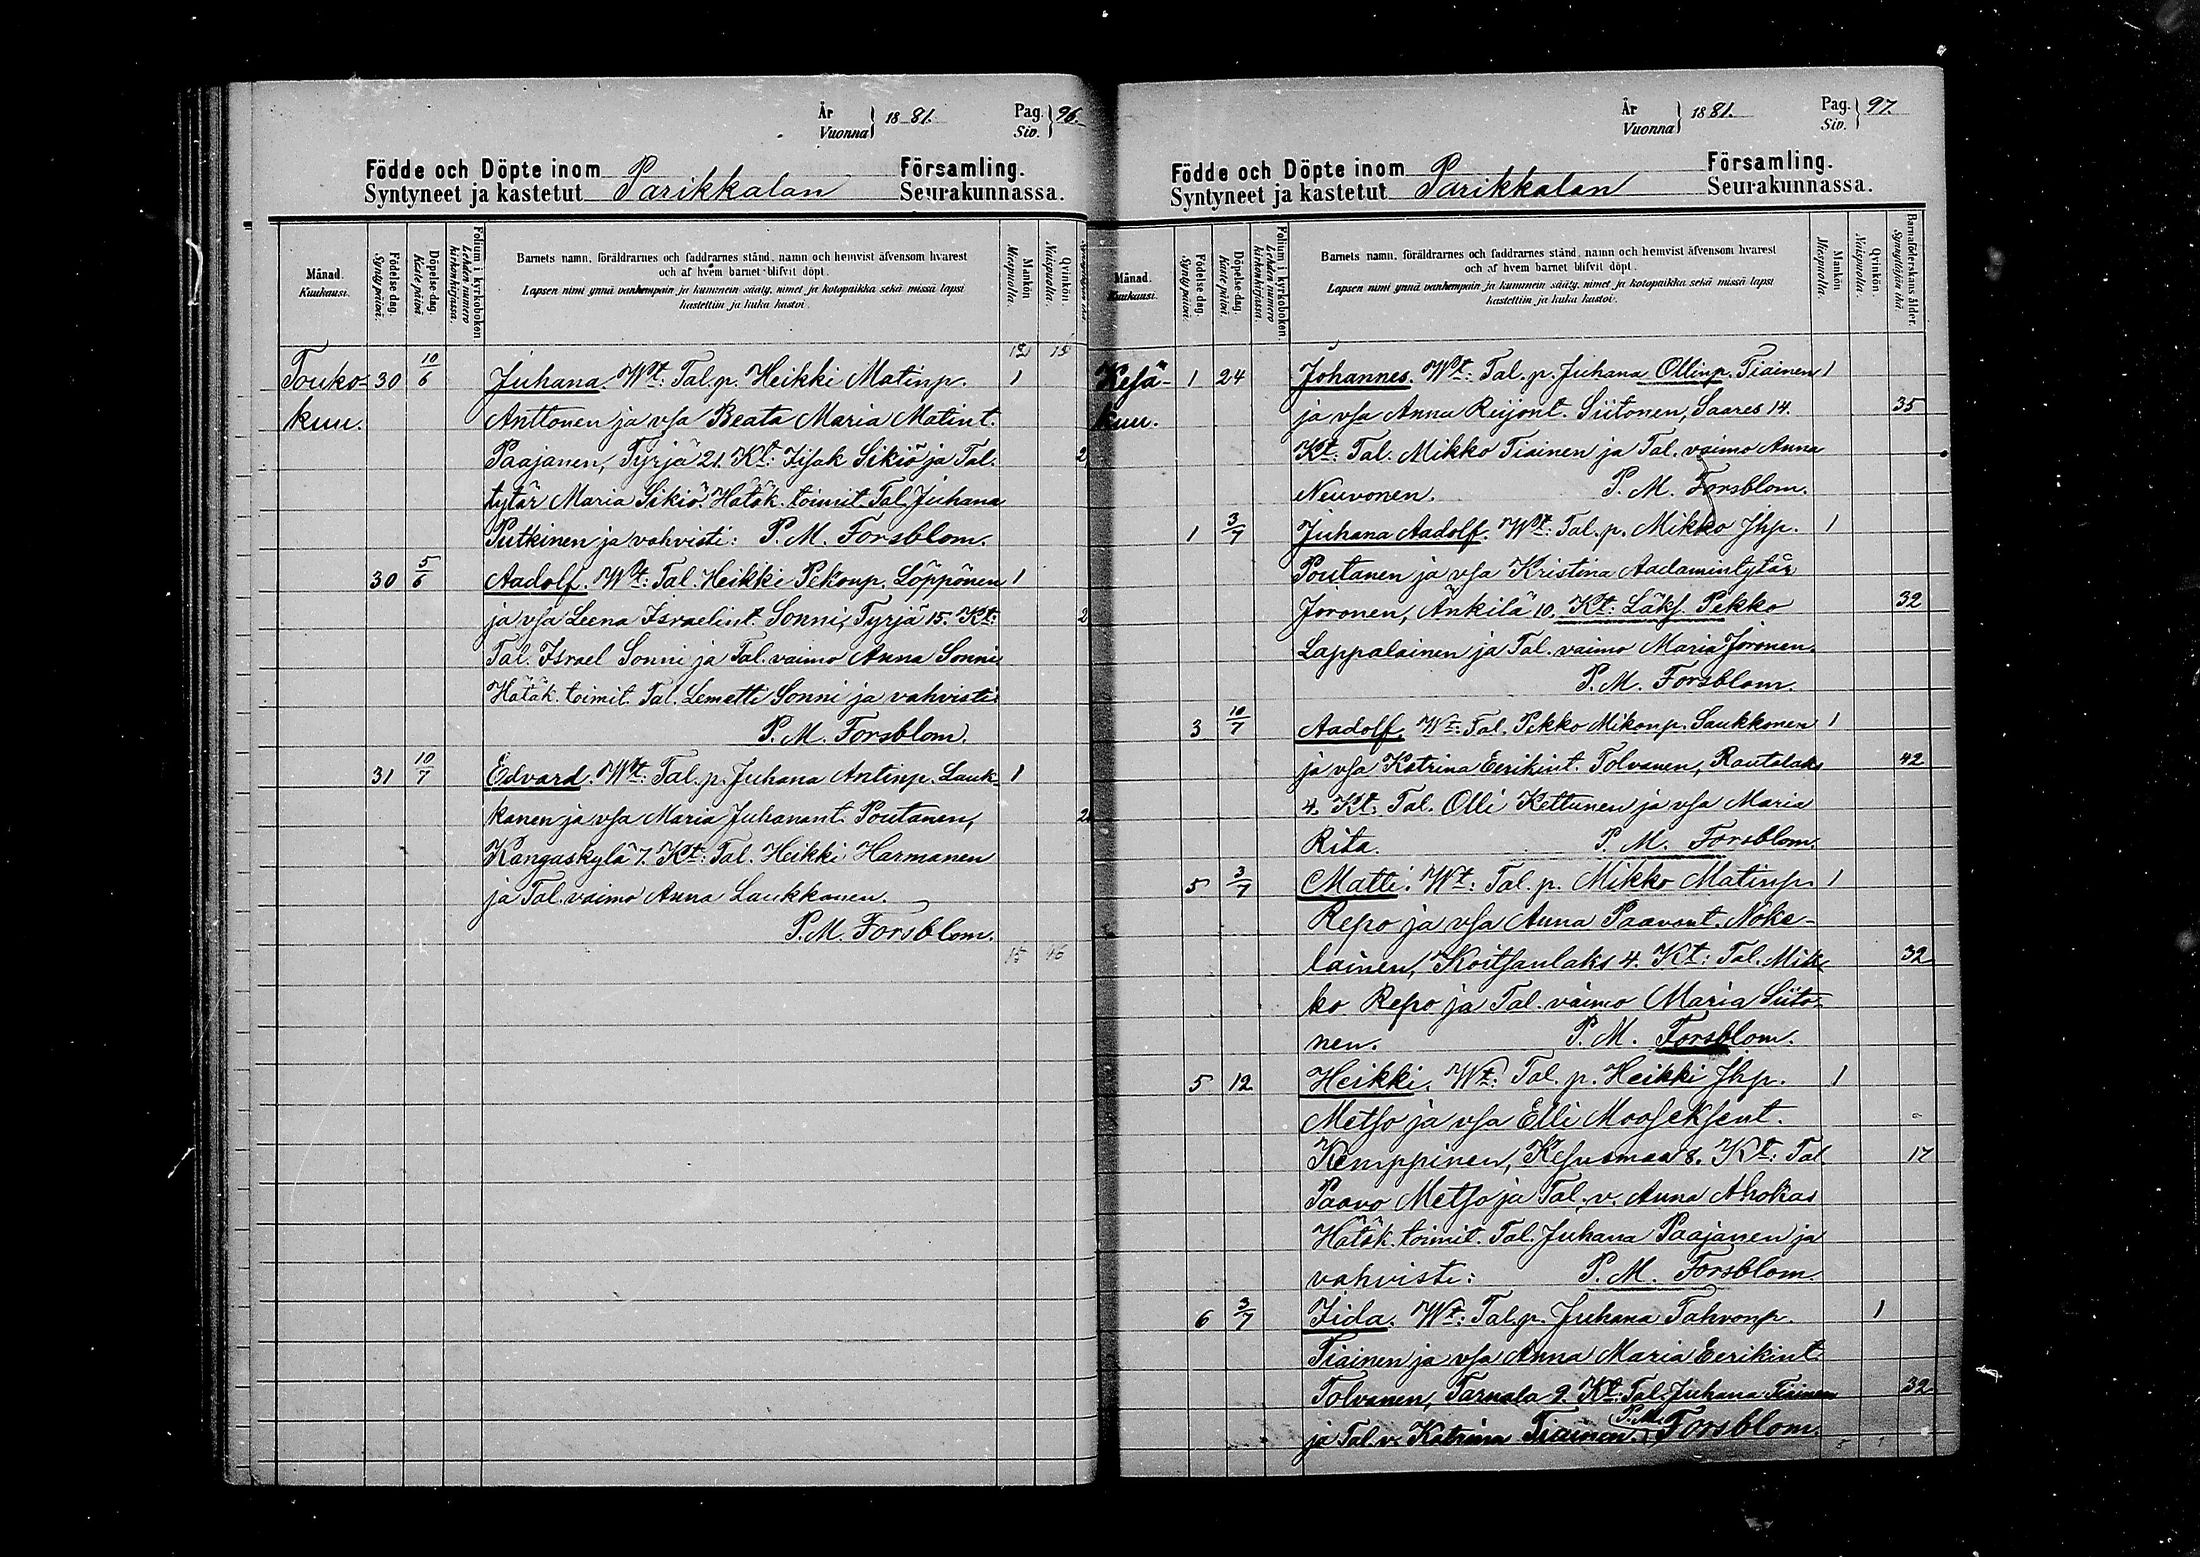 År
Vuonna } 1881. Pag.
Siv. } 96.
Födde och Döpte inom Parikkalan Församling.
Syntyneet ja kastetut Seurakunnassa.
Månad.
Kuukausi.
Födelse-dag.
Synty päivä.
Döpelse-dag.
Kaste päivä
Folium i kyrkoboken
Lehden numero kirkonkirjassa.
Barnets namn, föräldrarnes och faddrarnes stånd, namn och hemvist äfvensom hvarest
och af hvem barnet blifvit döpt.
Lapsen nimi ynnä vanhempain ja kummein sääty, nimet ja kotopaikka sekä missä lapsi
kastettiin ja kuka kastoi.
Mankön
Miespuolta.
Qvinkön.
Naispuolta.
Touko- 30 10/6 Juhana. Wt: Tal. p. Heikki Matinp. 1
kuu. Anttonen ja vsa Beata Maria Matint.
Paajanen, Tyrjä 21. Kt: Iisak Sikiö ja Tal. 2
tytär Maria Sikiö. Hätäk. toimit. Tal. Juhana
Putkinen ja vahvisti: P. M. Forsblom.
30 5/6 Aadolf. Wt: Tal. Heikki Pekonp. Löppönen 1
ja vsa Leena Israelint. Sonni, Tyrjä 15. Kt: 2
Tal. Israel Sonni ja Tal. vaimo Anna Sonni
Hätäk. toimit. Tal. Lemetti Sonni ja vahvisti:
P. M. Forsblom.
31 10/7 Edvard. Wt: Tal. p. Juhana Antinp. Lauk- 1
kanen ja vsa Maria Juhanant. Poutanen, 2
Kangaskylä 7. Kt: Tal. Heikki Harmanen
ja Tal. vaimo Anna Laukkanen.
P. M. Forsblom.
15 16
År
Vuonna } 1881. Pag.
Siv. } 97.
Födde och Döpte inom Parikkalan Församling.
Syntyneet ja kastetut Seurakunnassa.
Månad.
Kuukausi.
Födelse dag.
Synty päivä.
Döpelse-dag.
Kaste päivä
Folium i kyrkoboken
Lehden numero kirkonkirjassa.
Barnets namn, föräldrarnes och faddrarnes stånd, namn och hemvist äfvensom hvarest
och af hvem barnet blifvit döpt.
Lapsen nimi ynnä vanhempain ja kummein sääty, nimet ja kotopaikka sekä missä lapsi
kastettiin ja kuka kastoi.
Mankön
Miespuolta.
Qvinkön.
Naispuolta.
Barnaföderskans ålder.
Synnyttäjän ikä
Kesä- 1 24 Johannes. Wt: Tal. p. Juhana Ollinp. Tiainen 1
kuu. ja vsa Anna Reijont. Siitonen, Saares 14. 35
Kt: Tal. Mikko Tiainen ja Tal. vaimo Anna
Neuvonen. P. M. Forsblom.
1 3/7 Juhana Aadolf. Wt: Tal. p. Mikko Jhp. 1
Poutanen ja vsa Kristina Aadamintytär
Joronen, Änkilä 10. Kt: Läks. Pekko 32
Lappalainen ja Tal. vaimo Maria Joronen.
P. M. Forsblom.
3 10/7 Aadolf. Wt: Tal. Pekko Mikonp. Saukkonen 1
ja vsa Katrina Eerikint. Tolvanen, Rautalaks 42
4. Kt: Tal. Olli Kettunen ja vsa Maria
Rita. P. M. Forsblom.
5 3/7 Matti. Wt: Tal. p. Mikko Matinp. 1
Repo ja vsa Anna Paavont. Noke-
lainen, Koitsanlaks 4. Kt: Tal. Mik- 32
ko Repo ja Tal. vaimo Maria Siito-
nen. P. M. Forsblom.
5 12 Heikki. Wt: Tal. p. Heikki Jhp. 1
Metso ja vsa Elli Mooseksent.
Kemppinen, Kesusmaa 8. Kt: Tal. 17
Paavo Metso ja Tal. v. Anna Ahokas
Hätäk. toimit. Tal. Juhana Paajanen ja
vahvisti: P. M. Forsblom.
6 3/7 Iida. Wt: Tal. p. Juhana Tahvonp. 1
Tiainen ja vsa Anna Maria Eerikint.
Tolvanen, Tarnala 9. Kt: Tal. Juhana Tiainen 32
ja Tal. v. Katrina Tiainen. P. M. Forsblom.